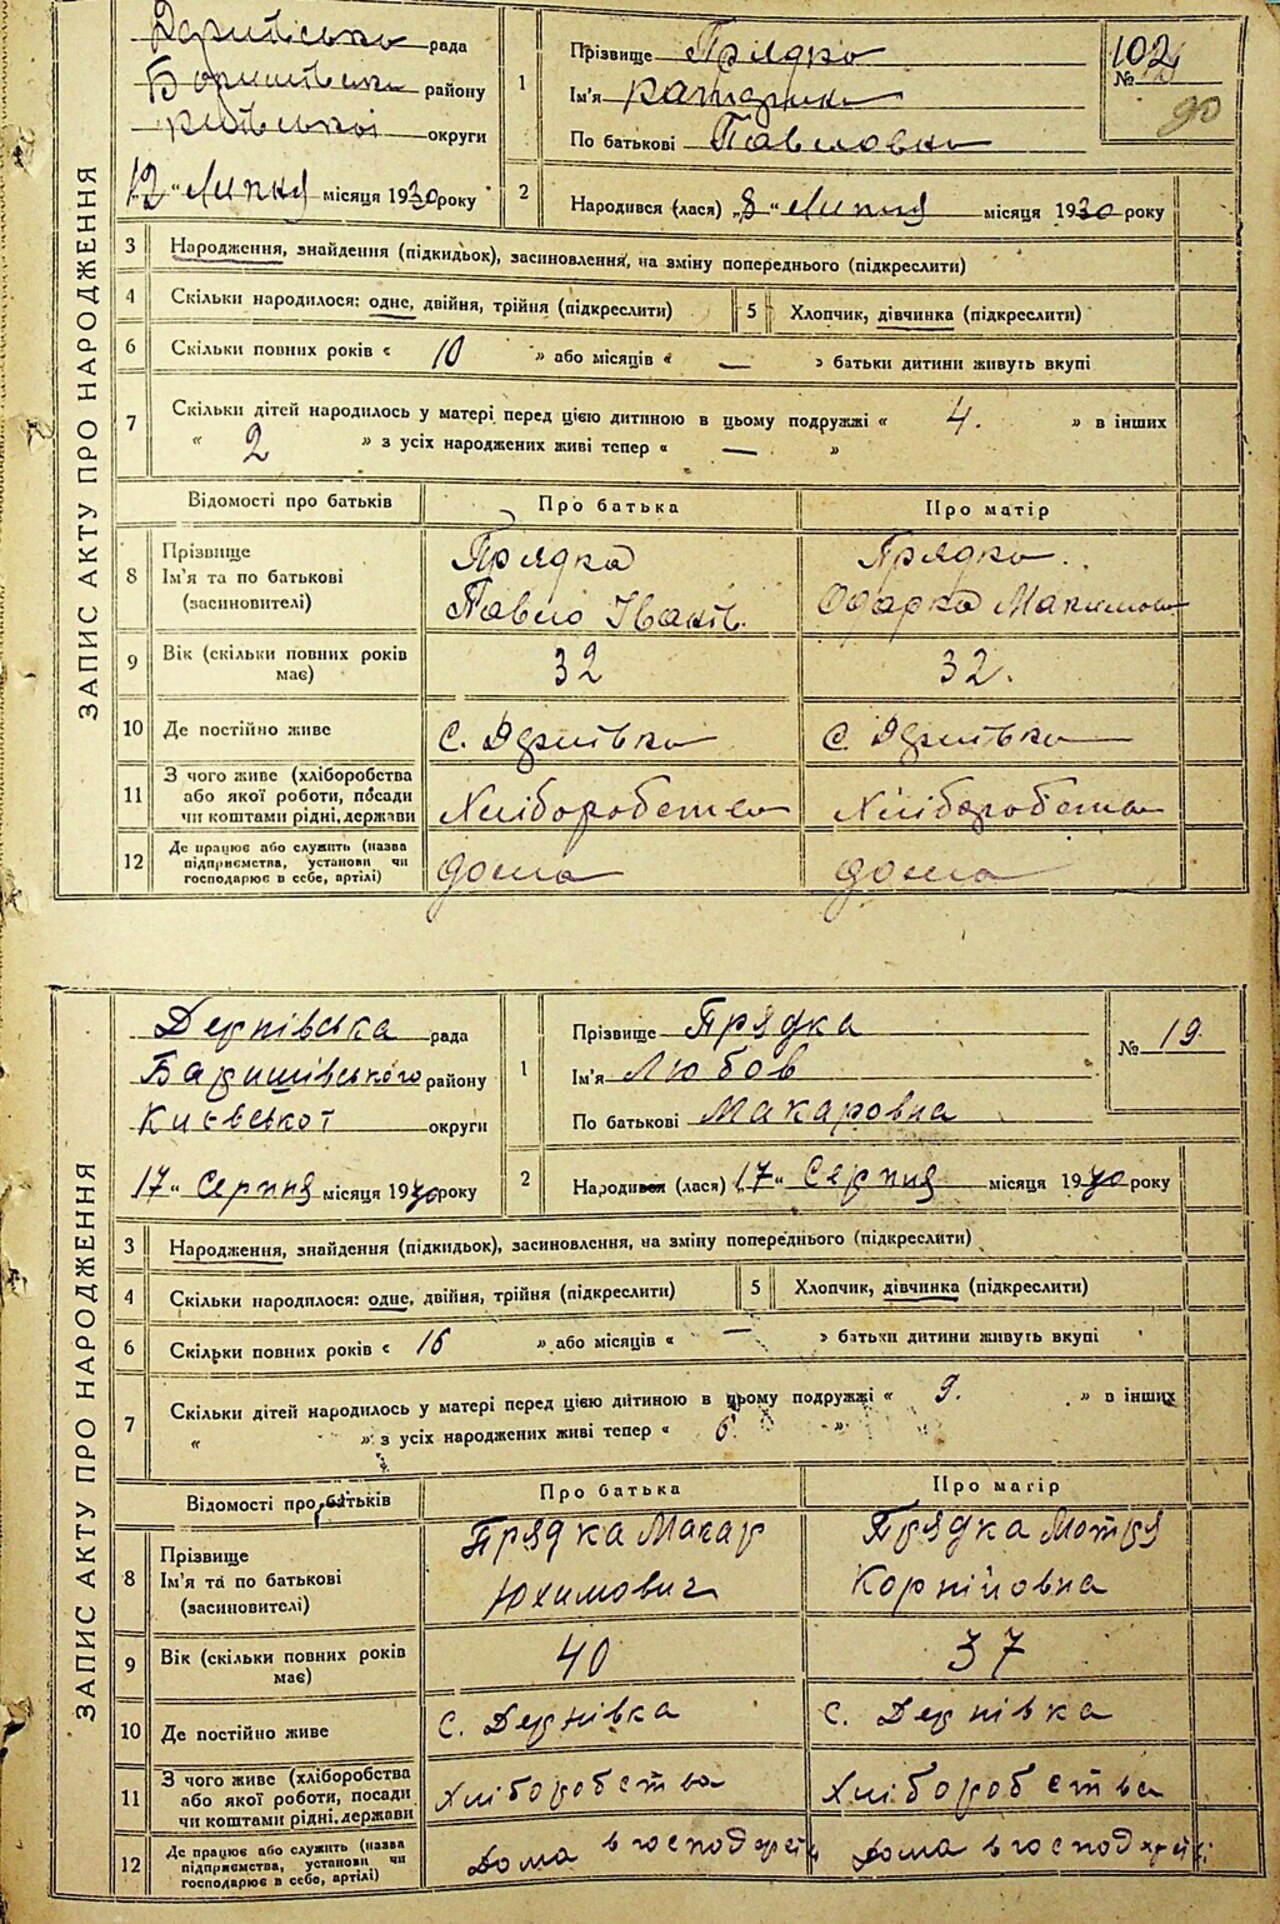 ЗАПИС АКТУ ПРО НАРОДЖЕННЯ
рада
району
Київської округи
"12" Липня місяця 1930 року
1
Прізвище Прядко
Ім'я Катерина
По батькові Павловна
102
№
90
2
Народився (лася) „8" Липня місяця 1930 року
3 Народження, знайдення (підкидьок), засиновлення, на зміну попереднього (підкреслити)
4 Скільки народилося: одне, двійня, трійня (підкреслити)
5 Хлопчик, дівчинка (підкреслити)
6 Скільки повних років « 10 » або місяців « — » батьки дитини живуть вкупі
7 Скільки дітей народилось у матері перед цією дитиною в цьому подружжі « 4. » в інших
« 2 » з усіх народжених живі тепер « — »
Відомості про батьків Про батька Про матір
8 Прізвище
Ім'я та по батькові
(засиновителі)
Прядка
Павло Іванів.
Прядко
Одарка Максимов
9 Вік (скільки повних років
має)
32
32.
10 Де постійно живе
с.
с.
11 З чого живе (хліборобства
або якої роботи, посади
чи коштами рідні, держави
Хліборобства
Хліборобства
12 Де працює або служить (назва
підприємства, установи чи
господарює в себе, артілі)
дома
дома
ЗАПИС АКТУ ПРО НАРОДЖЕННЯ
Дернівська рада
Баришівського району
Києвської округи
17" Серпня місяця 1930 року
1
Прізвище Прядка
Ім'я Любов
По батькові Макаровна
№ 19.
2
Народився (лася) „17" Серпня місяця 1930 року
3 Народження, знайдення (підкидьок), засиновлення, на зміну попереднього (підкреслити)
4 Скільки народилося: одне, двійня, трійня (підкреслити)
5 Хлопчик, дівчинка (підкреслити)
6 Скільки повних років « 16 » або місяців « — » батьки дитини живуть вкупі
7 Скільки дітей народилось у матері перед цією дитиною в цьому подружжі « 9. » в інших
« » з усіх народжених живі тепер « 6. »
Відомості про батьків Про батька Про матір
8 Прізвище
Ім'я та по батькові
(засиновителі)
Прядка Макар
Юхимович
Прядка Мотря
Корнійовна
9 Вік (скільки повних років
має)
40
37
10 Де постійно живе
с. Дернівка
с. Дернівка
11 З чого живе (хліборобства
або якої роботи, посади
чи коштами рідні, держави
Хліборобства
Хліборобства
12 Де працює або служить (назва
підприємства, установи чи
господарює в себе, артілі)
Дома в
Дома в